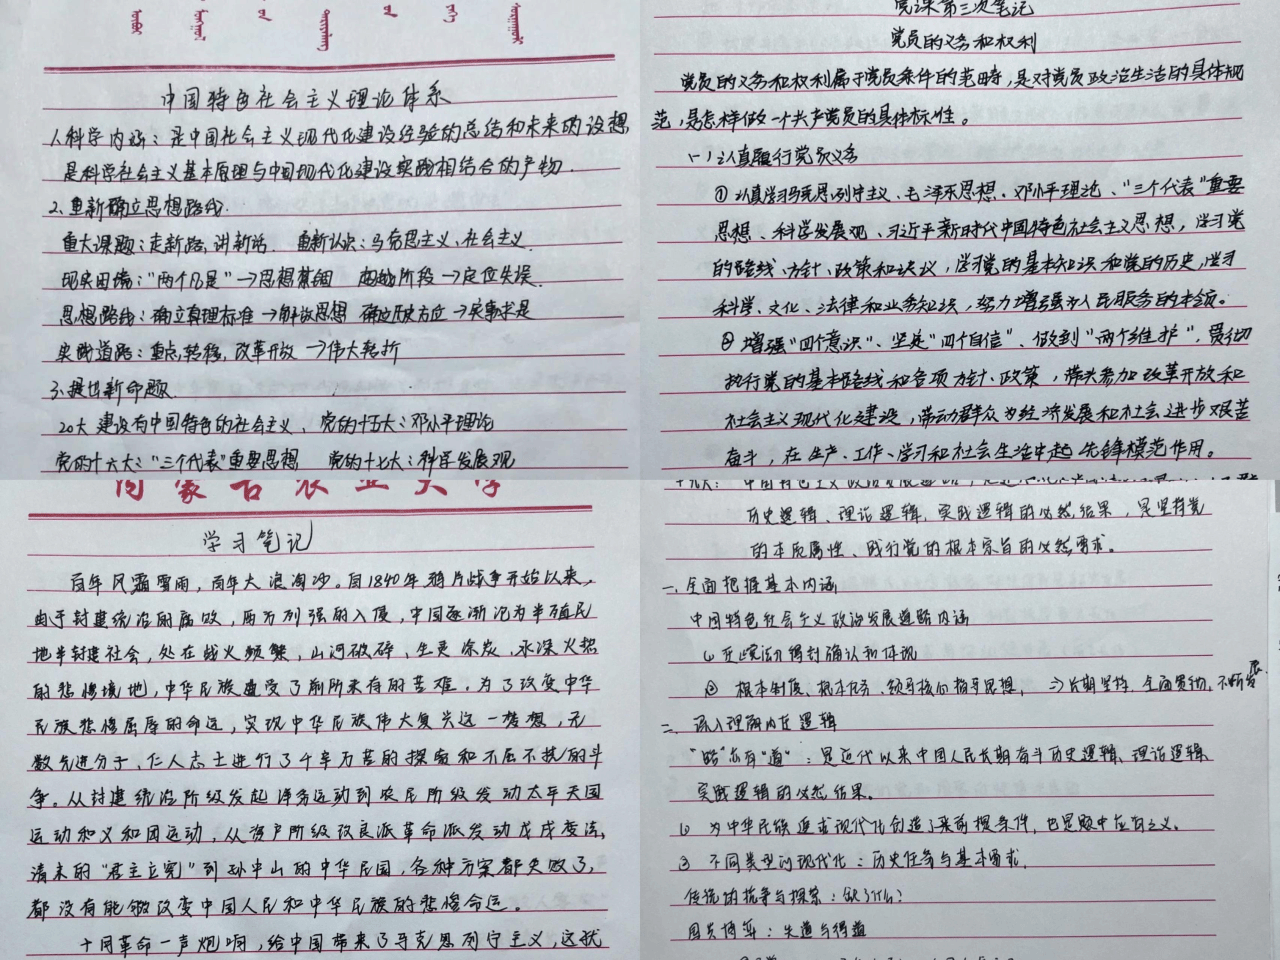 中国特色社会主义理论体系
1.科学内涵：是中国社会主义现代化建设经验的总结和未来的设想
是科学社会主义基本原理与中国现代化建设实践相结合的产物.
2.重新确立思想路线.
重大课题：走新路、讲新话 重新认识：马克思主义、社会主义.
现实困境："两个凡是"→思想禁锢 超越阶段→定位失误.
思想路线：确立真理标准→解放思想 确定历史方位→实事求是
实践道路：重点转移,改革开放→伟大转折
3.提出新命题.
20大 建设有中国特色的社会主义、党的十五大：邓小平理论
党的十六大："三个代表"重要思想 党的十七大：科学发展观
党课第三次笔记
党员的义务和权利
党员的义务和权利属于党员条件的范畴，是对党员政治生活的具体规
范，是怎样做一个共产党员的具体标准。
（一）认真履行党员义务
①认真学习马克思列宁主义、毛泽东思想、邓小平理论、"三个代表"重要
思想、科学发展观、习近平新时代中国特色社会主义思想，学习党
的路线、方针、政策和决议，学习党的基本知识和党的历史，学习
科学、文化、法律和业务知识，努力增强为人民服务的本领。
②增强"四个意识"、坚定"四个自信"、做到"两个维护"，贯彻
执行党的基本路线和各项方针、政策，带头参加改革开放和
社会主义现代化建设，带动群众为经济发展和社会进步艰苦
奋斗，在生产、工作、学习和社会生活中起先锋模范作用。
内蒙古农业大学
学习笔记
百年风霜雪雨，百年大浪淘沙。自1840年鸦片战争开始以来，
由于封建统治的腐败，西方列强的入侵，中国逐渐沦为半殖民
地半封建社会，处在战火频繁，山河破碎、生灵涂炭、水深火热
的悲惨境地，中华民族遭受了前所未有的苦难。为了改变中华
民族悲惨屈辱的命运，实现中华民族伟大复兴这一梦想，无
数先进分子、仁人志士进行了千辛万苦的探索和不屈不挠的斗
争。从封建统治阶级发起洋务运动到农民阶级发动太平天国
运动和义和团运动，从资产阶级改良派革命派发动戊戌变法，
清末的"君主立宪"到孙中山的中华民国，各种方案都失败了，
都没有能够改变中国人民和中华民族的悲惨命运。
十月革命一声炮响，给中国带来了马克思列宁主义，这就
十九大： 中国特色社会主义政治发展道路
历史逻辑、理论逻辑、实践逻辑的必然结果，是坚持党
的本质属性、践行党的根本宗旨的必然要求。
一.全面把握基本内涵
中国特色社会主义政治发展道路内涵
① 在宪法得到确认和体现
② 根本制度、根本任务、领导核心指导思想， ⇒长期坚持、全面贯彻,不断发展
二. 深入理解内在逻辑
"路"亦有"道"：是近代以来中国人民长期奋斗历史逻辑、理论逻辑、
实践逻辑的必然结果。
① 为中华民族追求现代化创造了某前提条件，也是题中应有之义。
② 不同类型的现代化：历史任务与基本要求.
传统的抗争与探索：缺了什么?
国共博弈：失道与得道